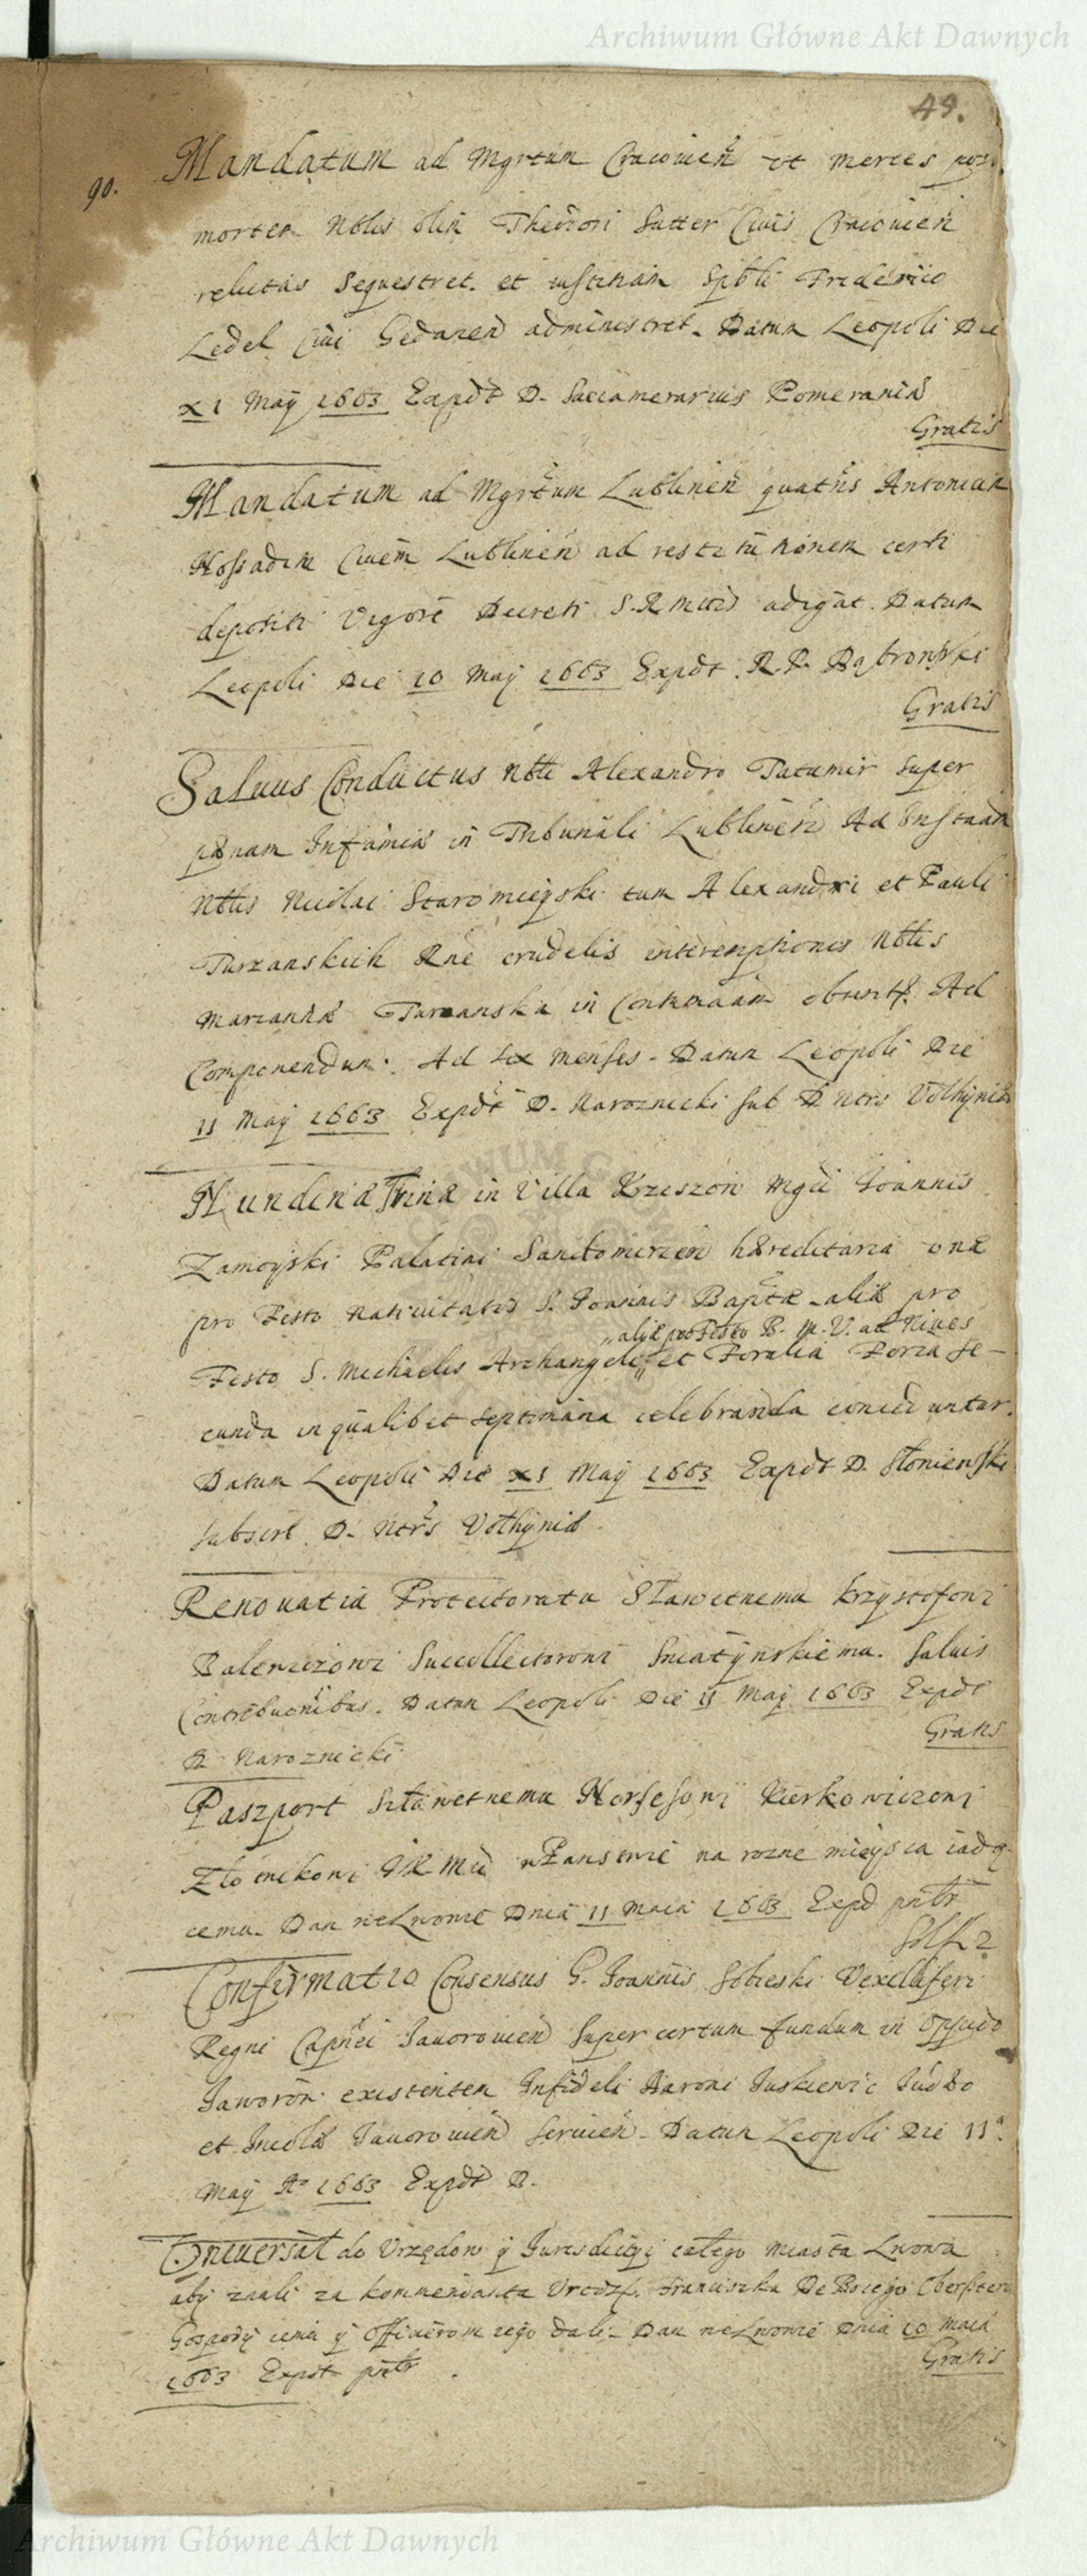 Archiwum Główne Akt Dawnych
49.
90.
Mandatum ad Mgrtum Cracouień ut merces post
mortem Nblis olim Theodori Sutter Ciuis Cracouień
relictas Sequestret. et iustitiam Spbli Friderico
Ledel Ciui Gedanen administret. Datum Leopoli Die
XI Maÿ 1663 Expdt D. Succamerarius Pomeraniæ
Gratis
Mandatum ad Mgrtum Lublinen quatns Antonium
Hossadim Ciuem Lublinen ad restitutionem certi
depositi Vigore Decreti S.R.Mttis adigat. Datum
Leopoli Die 10 Maÿ 1663 Expdt. R.P. Dąbronski
Gratis
Saluus Conductus Nbli Alexandro Tatumir super
pænam Infamiæ in Tribunali Lublinen Ad Instaan
Nblis Nicolai Staromieÿski tum Alexandri et Pauli
Turzanskich Rne crudelis interemptionis Nblis
Mariannæ Turzanska in Contumaam obtent. Ad
Componendum. Ad sex menses. Datum Leopoli Die
11 Maÿ 1663 Expdt D. Naroznicki sub D Ntris Volhÿniæ
Nundinæ Trinæ in Villa Krzeszow Mgci Joannis
Zamoyski Palatini Sandomirien hæreditaria unæ
pro Festo Natiuitatis S. Joannis Baptæ aliæ pro
„aliæ pro Festo B. M. V. ad Niues
Festo S. Michaelis Archangeli„ et Foralia Feria se-
cunda in qualibet septimana celebranda conceduntur.
Datum Leopoli Die XI Maÿ 1663 Expdt D. Słonienski
subscrl. D. Ntrs Volhÿniæ.
Renouatia Protectoratu Sławetnemu Krzysztofowi
Succollectorowi Sniatÿnskiemu. Saluis
Contribuonibus. Datum Leopoli Die 11 Maÿ 1663 Expdt
Gratis
D. Naroznicki
Paszport Szławetnemu Horsesowi Kierkowiczowi
Złotnikowi JKMci w Panstwie na rozne mieysca iadą-
cemu. Dan we Lwowie Dnia 11 Maia 1663 Expd pntbr
Confirmatio Consensus G. Joannis Sobieski Vexilliferi
Regni Capnei Jauorouien super certum fundum in Oppido
Jaworow existentem Infideli Aaroni Juskiewic Judæo
et Incolæ Jauorouien seruien. Datum Leopoli Die 11a
Maÿ Ao 1663 Expdt D.
Uniuersał do Vrzędow ÿ Jurisdictÿi całego Miasta Lwowa
abÿ znali za kommendanta Vrodz. Franciszka De Oberster
Gospodÿ iemu ÿ Officierom iego dali. Dan we Lwowie Dnia 10 Maia
1663 Expdt pntbr
Gratis
Archiwum Główne Akt Dawnych